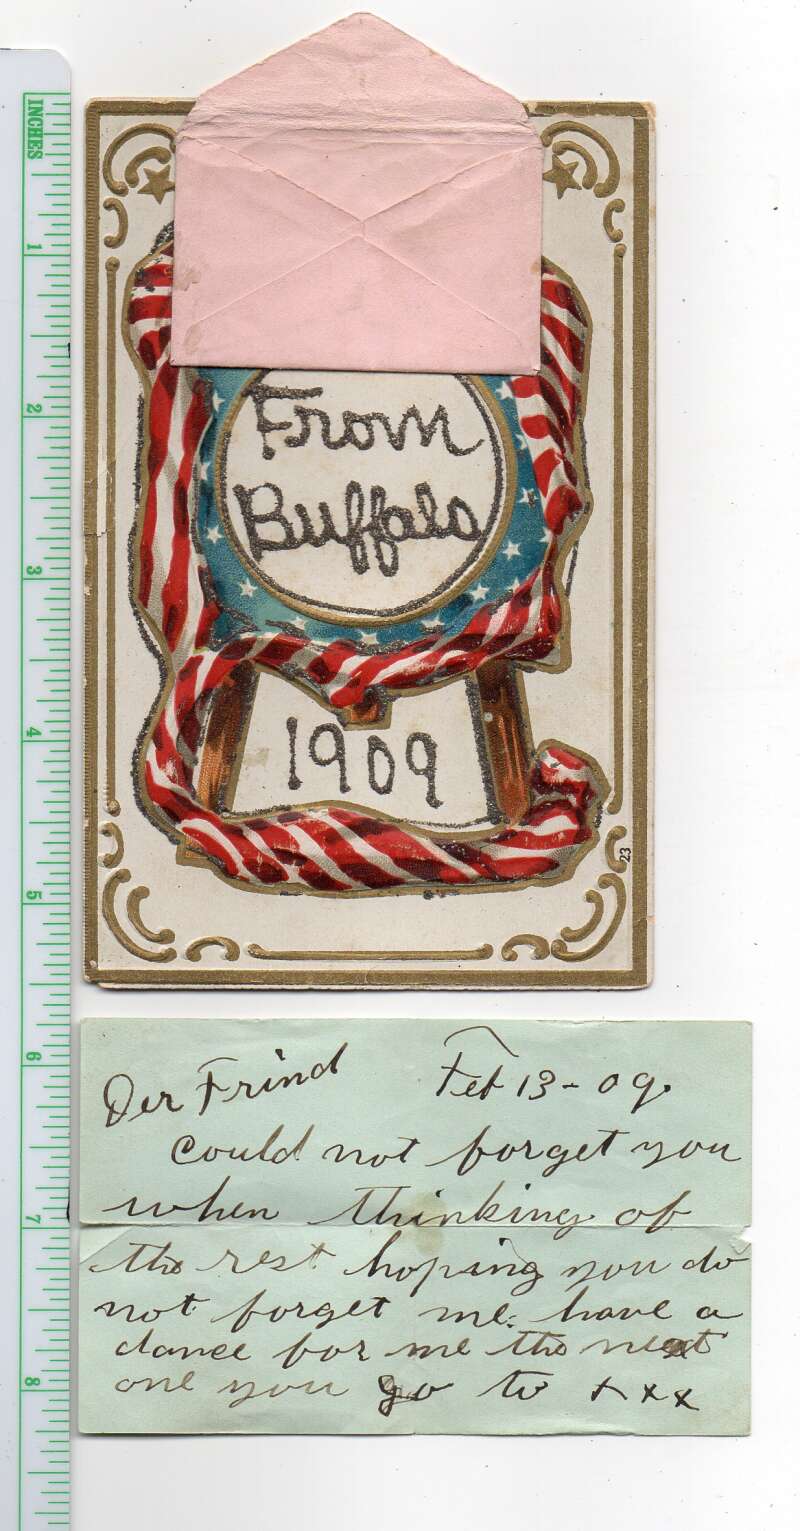 INCHES
1
2
3
4
5
6
7
8
From
Buffalo
1909
23
Der Frind Feb 13 - 09.
could not forget you
when thinking of
the rest hoping you do
not forget me. have a
dance for me the next
one you go to x x x